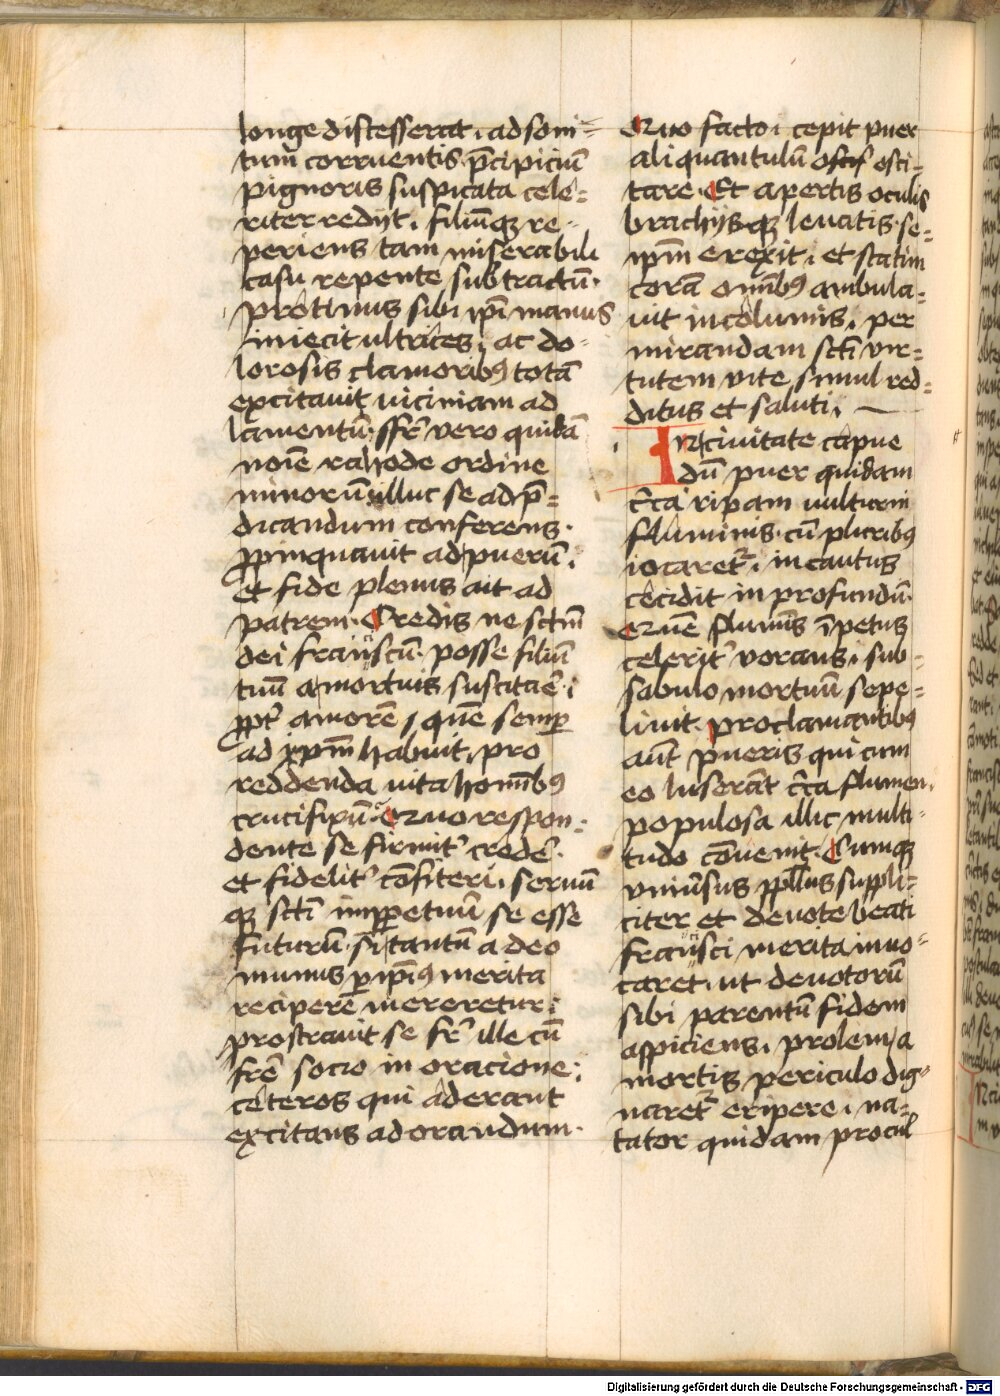 longe discesserat, ad soni=
tum corruentis p̄cipiciū
pignoris suspicata cele=
riter redijt, filiūqꝫ re=
periens tam miserabili
casu repente subtractū.
protinus sibi ip̄i manus
iniecit ultrices, ac do=
lorosis clamoribꝰ totā
excitauit uiciniam ad
lamentū. ffr̄ vero quidā
noīe rahode ordine
minorū illuc se ad p̄=
dicandum conferens.
ꝓpinquauit ad puerū,
et fide plenus ait ad
patrem. Credis ne sctm̄
dei franciscū posse filiū
tuū a mortuis suscitar̄e,
ꝓpt̄ amorē, quē semꝑ
ad xp̄m habuit, pro
reddenda uita homībꝰ
crucifixū. Quo respon=
dente se firmit̄ creder̄e
et fidelit̄ cōfiteri, seruū
qꝫ scti imꝑpetuū se esse
futurū, si tantū a deo
munus ꝑ ip̄iꝰ merita
recipere mereretur,
prostrauit se fr̄ ille cū
fr̄e socio in oracione,
ceteros qui aderant
excitans ad orandum.
Quo facto, cepit puer
aliquantulū osci=
tare. Et apertis oculis
brachijsqꝫ leuatis se=
ip̄m erexit, et statim
corā omībꝰ ambula=
uit incolumis, per
mirandam scti vir=
tutem vite simul red=
ditus et saluti,
In ciuitate capue
dū puer quidam
circa ripam uulturni
fluminis cū pluribꝰ
iocaret᷑, incautus
cecidit in profundū
Quē flumīs īpetus
celerit̄ vorans, sub
sabulo mortuū sepe=
liuit. proclamantibꝰ
aūt pueris qui cum
eo luserāt circa flumen,
populosa illic multi
tudo cōuenit. Cumqꝫ
vniūsus ppl̄us suppli=
citer et deuote beati
francisci merita inuo=
caret, ut deuotorū
sibi parentū fidem
aspiciens, prolem a
mortis periculo dig=
naret᷑ eripere, na=
tator quidam procul
Digitalisierung gefördert durch die Deutsche Forschungsgemeinschaft - DFG